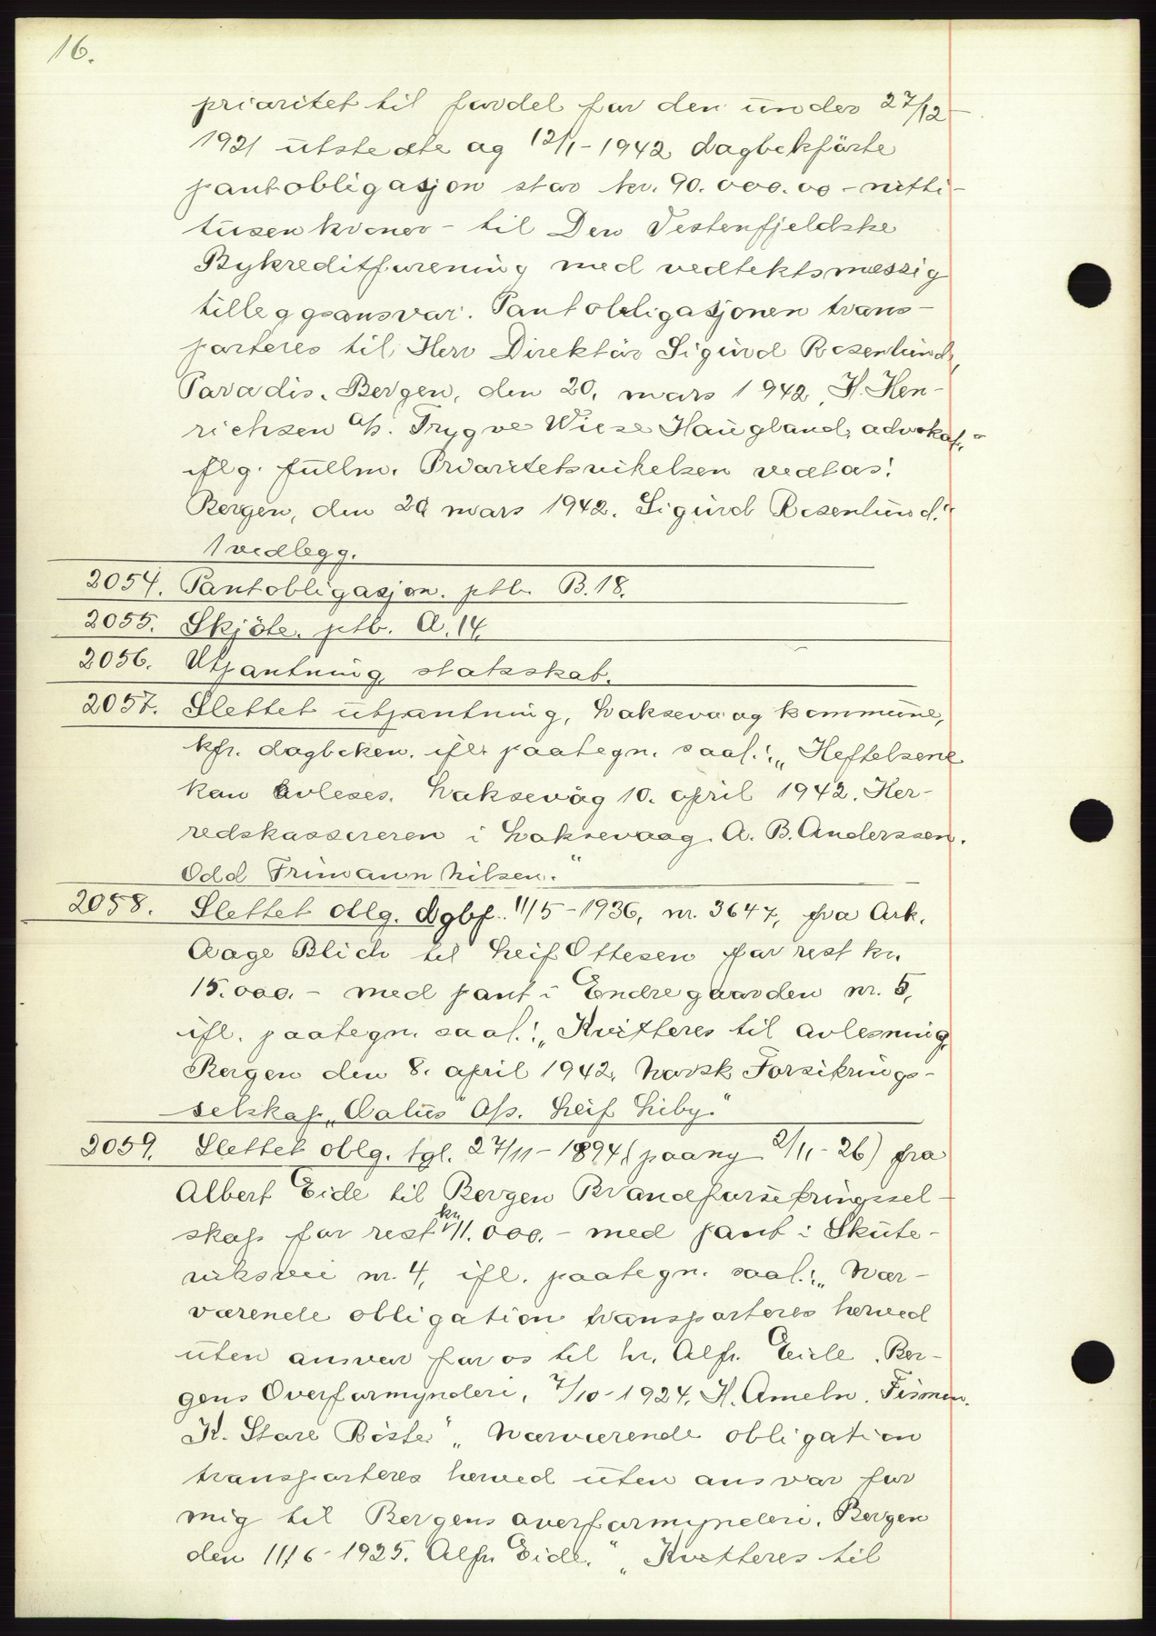 16.
prioritet til fordel for den under 27/12-
1921 utstedte og 12/1-1942 dagbokførte
pantobligasjon stor kr. 90.000.00 - nitti-
tusen kroner - til Den Vestenfjeldske
Bykreditforening med vedtektsmessig
tilleggsansvar. Pantobligasjonen trans-
porteres til Herr Direktør Sigurd Rosenlund,
Paradis. Bergen, den 20. mars 1942. H. Hen-
richsen a/s. Trygve Wiese Haugland, advokat.
iflg. fullm. Prioritetsvikelsen vedtas!
Bergen, den 20 mars 1942. Sigurd Rosenlund."
1 vedlegg.
2054. Pantobligasjon. ptb. B.18.
2055. Skjöte. ptb. A.14.
2056. Utpantning, statsskat.
2057. Slettet utpantning, Laksevaag kommune,
kfr. dagboken. ifl. paategn. saal.: „Heftelsene
kan avleses. Laksevåg 10. april 1942. Her-
redskassereren i Laksevaag. A. B. Anderssen.
Odd Frimann Nilsen."
2058. Slettet oblg. dgbf. 11/5-1936, nr. 3647, fra Ark.
Aage Blich til Leif Ottesen for rest kr.
15.000.- med pant i Endregaarden nr. 5,
ifl. paategn. saal.: „Kvitteres til avlesning,
Bergen den 8. april 1942. Norsk Forsikrings-
selskap „Dalus" A/s. Leif Liby."
2059. Slettet oblg. tgl. 27/11-1894 (paany 2/11-26) fra
Albert Eide til Bergen Brandforsikringssel-
skap for rest kr. 11.000.- med pant i Skute-
viksvei nr. 4, ifl. paategn. saal.: „Nær-
værende obligation transporteres herved
uten ansvar for os til hr. Alfr. Eide. Ber-
gens Overformynderi, 7/10-1924. H. Ameln.
K. Stare „Nærværende obligation
transporteres herved uten ansvar for
mig til Bergens overformynderi. Bergen
den 11/6-1925. Alfr. Eide." „Kvitteres til